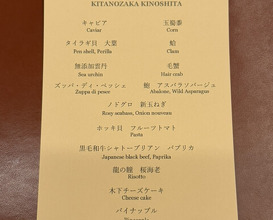 KITANOZAKA KINOSHITA
キャビア　玉蜀黍
Caviar　Corn
タイラギ貝　大葉　蛤
Pen shell, Perilla　Clam
無添加雲丹　毛蟹
Sea urchin　Hair crab
ズッパ・ディ・ペッシェ　鮑　アスパラソバージュ
Zuppa di pesce　Abalone, Wild Asparagus
ノドグロ　新玉ねぎ
Rosy seabass, Onion nouveau
ホッキ貝　フルーツトマト
Pasta
黒毛和牛シャトーブリアン　パプリカ
Japanese black beef, Paprika
龍の瞳　桜海老
Risotto
木下チーズケーキ
Cheese cake
パイナップル